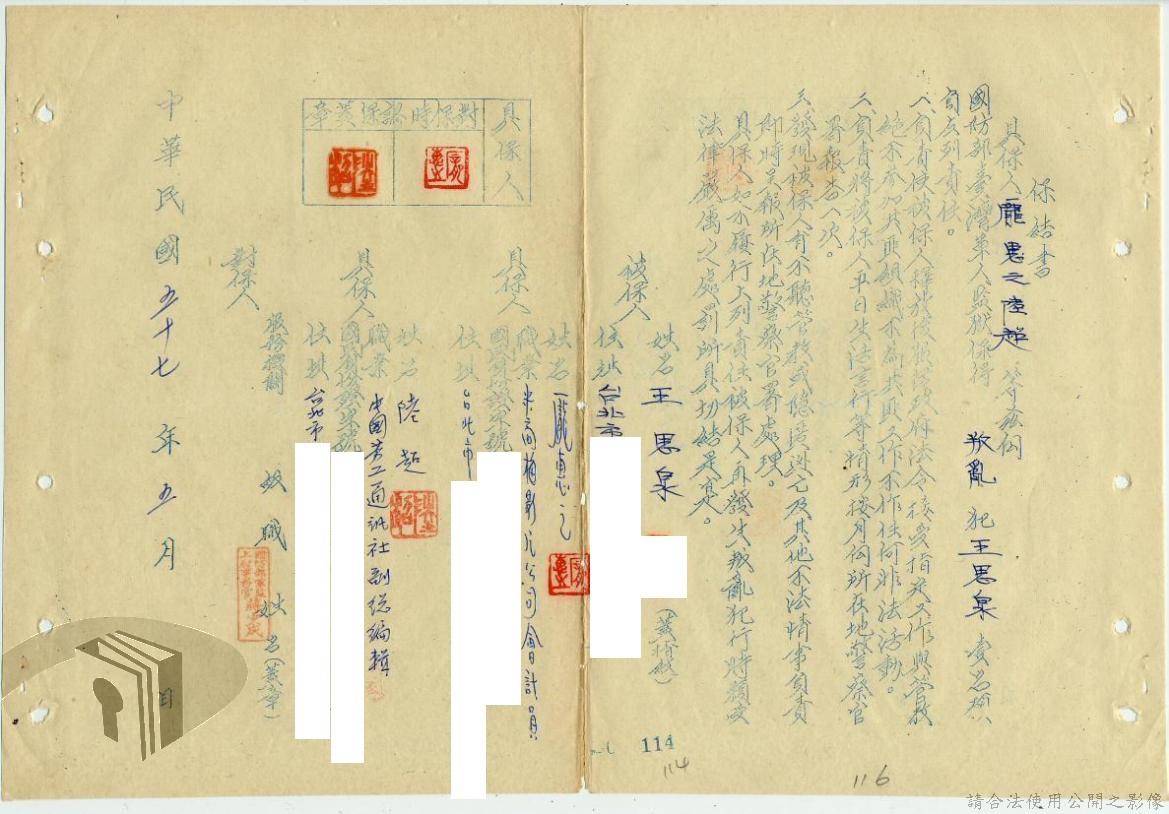 保結書
具保人龐惠之陸超等茲向
國防部臺灣軍人監獄保得 叛亂 犯王思泉 壹名願
負左列責任。
一、負責使被保人釋放後服從政府法令接受指定工作與管教
絕不參加共匪組織不為共匪工作不作任何非法活動。
二、負責將被保人平日生活言行等情形按月向所在地警察官
署報告一次。
三、發現被保人有不聽管教或隱匿逃亡及其他不法情事負責
即時具報所在地警察官署處理。
具保人如不履行上列責任被保人再發生叛亂犯行時願受
法律嚴厲之處罰所具切結是實。
被保人 姓名 王思泉
住址 台北市
具保人 姓名 龐惠之
職業 米高梅影片公司會計員
國民身份證 字 號
住址 台北市
具保人 姓名 陸超
職業 中國勞工通訊社副總編輯
國民身份證 字 號
住址 台北市
對保人 服務機關 級職 姓名(蓋章)
具保人
對保時認保蓋章
中華民國五十七年五月 日
114
114
116
請合法使用公開之影像